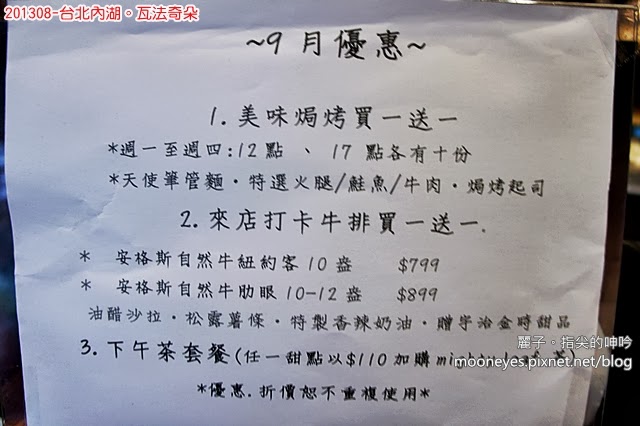 201308-台北內湖。瓦法奇朵
~9月優惠~
1.美味焗烤買一送一
*週一至週四:12點 、 17 點各有十份
*天使筆管麵‧特選火腿/鮭魚/牛肉‧焗烤起司
2.來店打卡牛排買一送一.
* 安格斯自然牛紐約客 10 盎 $799
* 安格斯自然牛肋眼 10-12 盎 $899
油醋沙拉‧松露薯條‧特製香辣奶油‧贈宇治金時甜品
3.下午茶套餐(任一甜點以$110 加購
麗子。指尖的呻吟
mooneyes.pixnet.net/blog
*優惠.折價恕不重複使用*